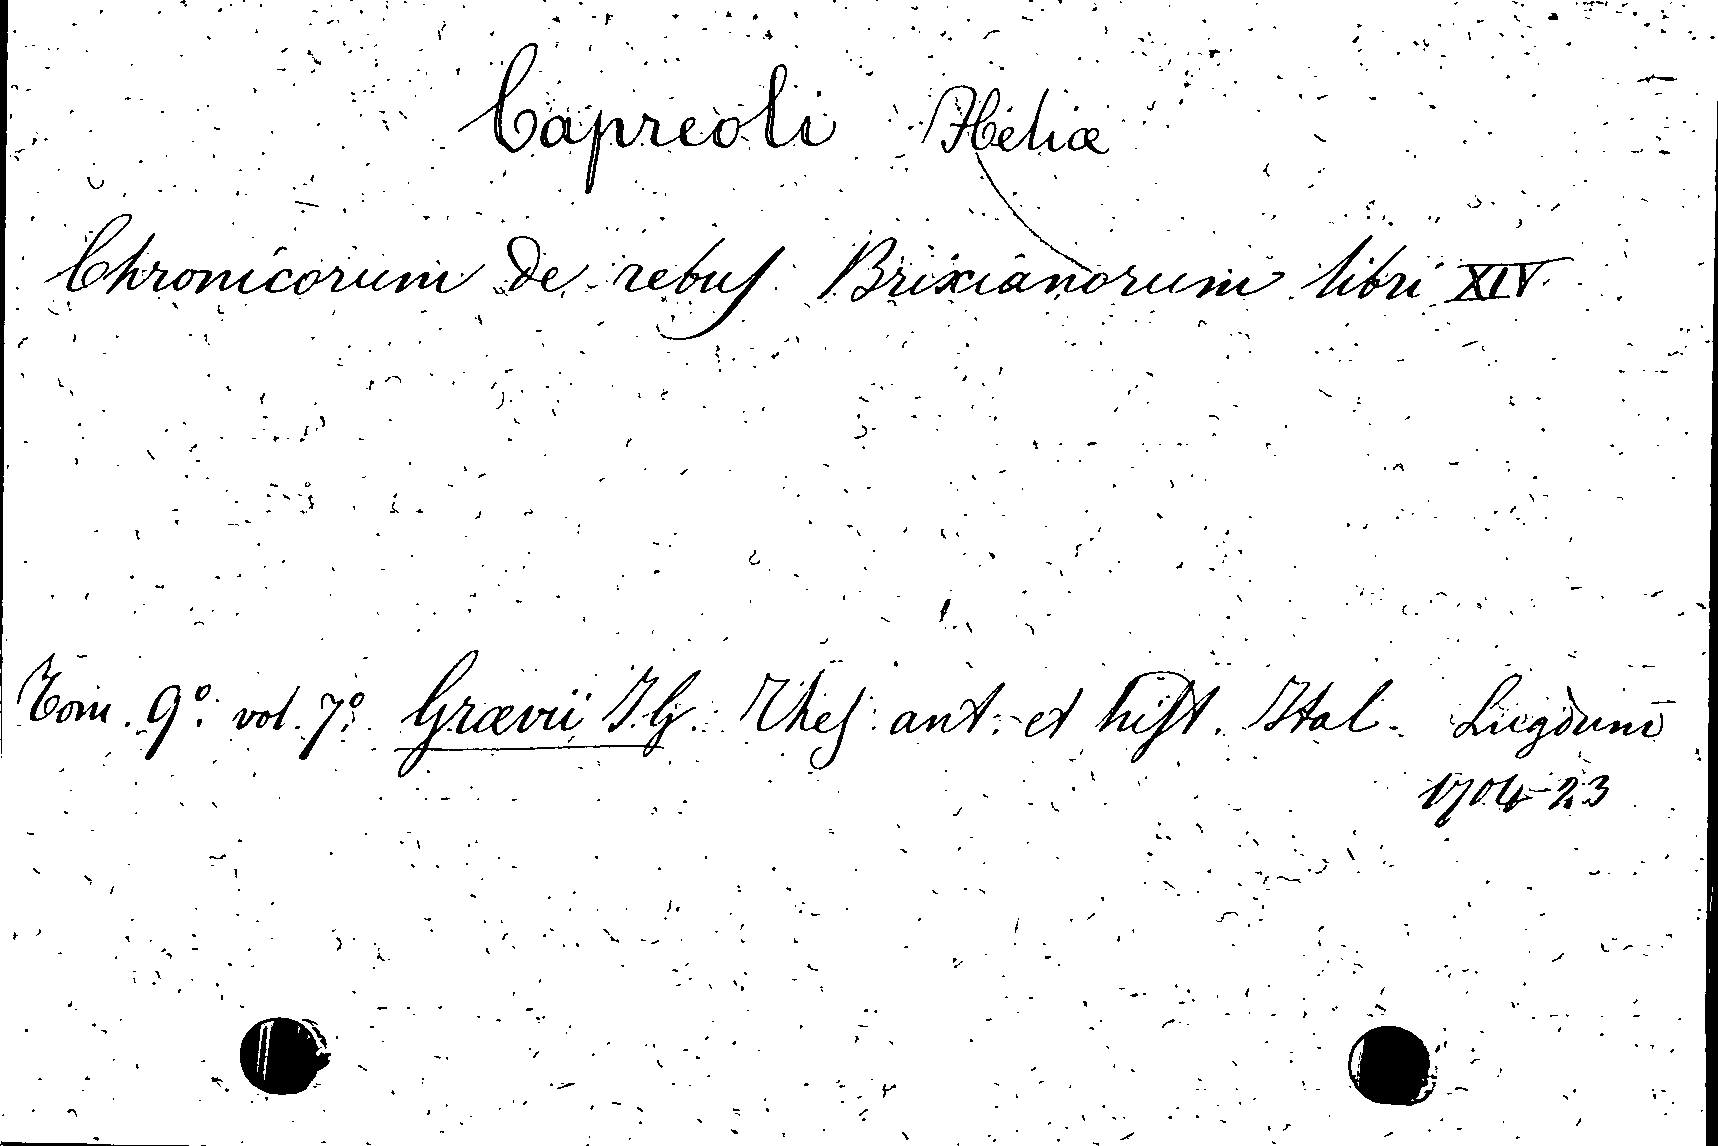 Capreoli Heliæ
Chronicorum de rebus Brixianorum libri XIV.
Tom. 9º. vol. 7º. Grævii I. G. Thes. ant. et hist. Ital. Lugduni
1704-23